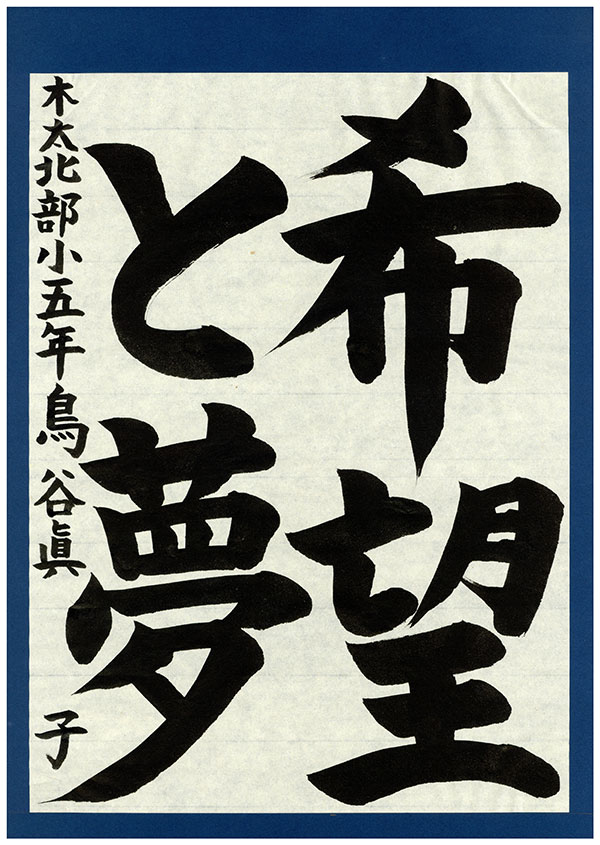 希望
と夢
木太北部小五年鳥谷眞子